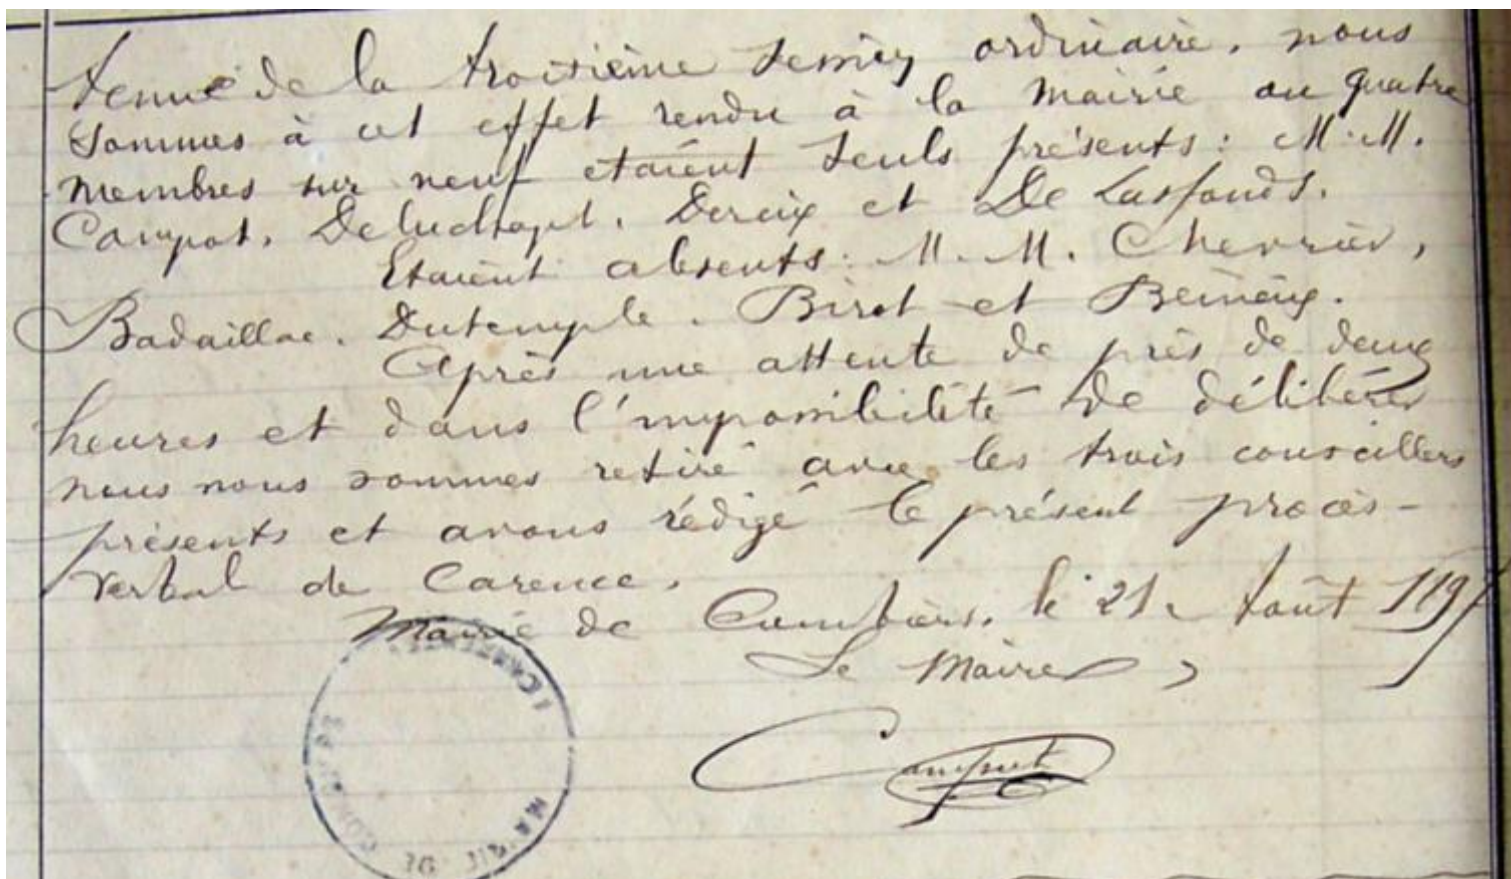 tenue de la troisième session ordinaire, nous
sommes à cet effet rendu à la Mairie ou quatre
membres sur neuf etaient seuls présents: M.M.
Campot, Deluchapt, Dereix et De Lasfonds.
Etaient absents: M.M. Chevrier,
Badaillac, Dutemple, Birot et Beineix.
Après une attente de près de deux
heures et dans l'impossibilité de délibérer
nous nous sommes retiré avec les trois conseillers
présents et avons rédigé le présent procès-
verbal de Carence.
Mairie de Combiers, le 21 Août
Le Maire,
Campot
MAIRIE DE COMBIERS
(CHARENTE)